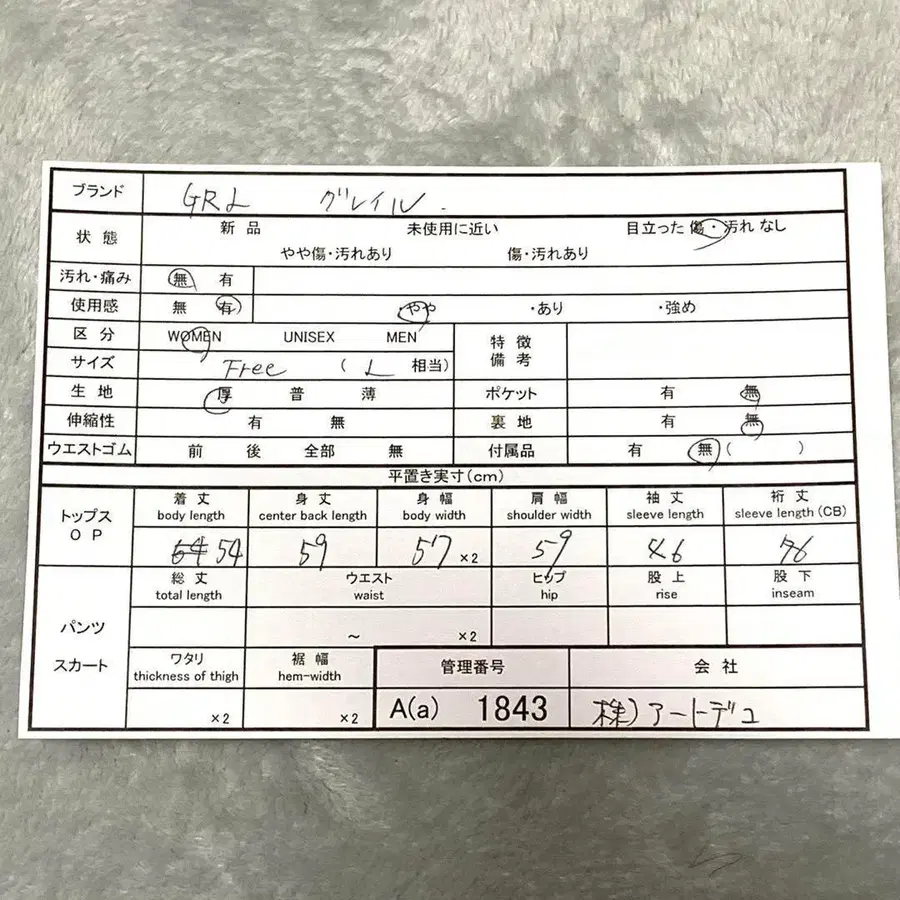 ブランド GRL グレイル.
状態 新品 未使用に近い 目立った傷・汚れなし
やや傷・汚れあり 傷・汚れあり
汚れ・痛み 無 有
使用感 無 有) やや ・あり ・強め
区分 WOMEN UNISEX MEN 特徴備考
サイズ Free (L 相当)
生地 厚 普 薄 ポケット 有 無
伸縮性 有 無 裏地 有 無
ウエストゴム 前 後 全部 無 付属品 有 無( )
平置き実寸(cm)
トップス OP 着丈 身丈 身幅 肩幅 袖丈 裄丈
body length center back length body width shoulder width sleeve length sleeve length (CB)
54 59 57 ×2 59 46 76
パンツ スカート 総丈 ウエスト ヒップ 股上 股下
total length waist hip rise inseam
～ ×2
ワタリ 裾幅 管理番号 会社
thickness of thigh hem-width
×2 ×2 A(a) 1843 株)アートデュ